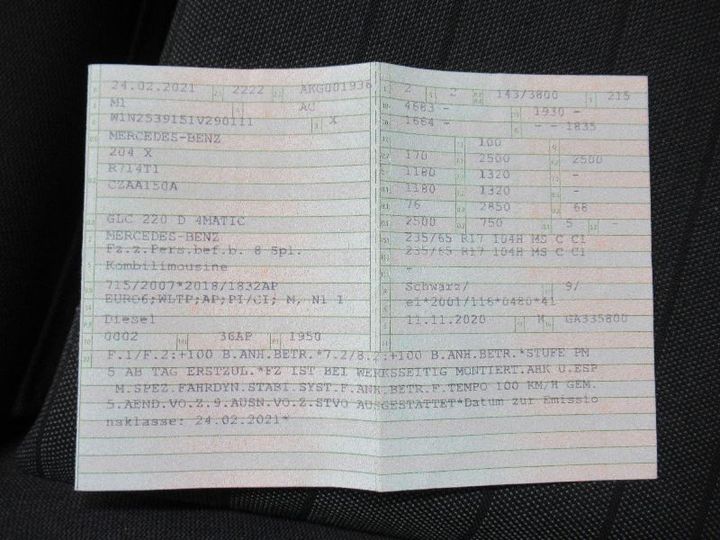 24.02.2021 2222 AKG001936
M1 AC
W1N2539151V290111 X
MERCEDES-BENZ
204 X
R714T1
CZAA150A
GLC 220 D 4MATIC
MERCEDES-BENZ
Fz.z.Pers.bef.b. 8 Spl.
Kombilimousine
715/2007*2018/1832AP
EURO6;WLTP;AP;PI/CI; M, N1 I
Diesel
0002 36AP 1950
2 2 143/3800 215
4683 - 1930 -
1664 - - - 1835
100
170 2500 2500
1180 1320 -
1180 1320 -
76 2850 68
2500 750 5 -
235/65 R17 104H MS C C1
235/65 R17 104H MS C C1
-
Schwarz/ 9/
e1*2001/116*0480*41
11.11.2020 K GA335800
F.1/F.2:+100 B.ANH.BETR.*7.2/8.2:+100 B.ANH.BETR.*STUFE PM
5 AB TAG ERSTZUL.*FZ IST BEI WERKSSEITIG MONTIERT.AHK U.ESP
M.SPEZ.FAHRDYN.STABI.SYST.F.ANH.BETR.F.TEMPO 100 KM/H GEM.
5.AEND.VO.Z.9.AUSN.VO.Z.STVO AUSGESTATTET*Datum zur Emissio
nsklasse: 24.02.2021*